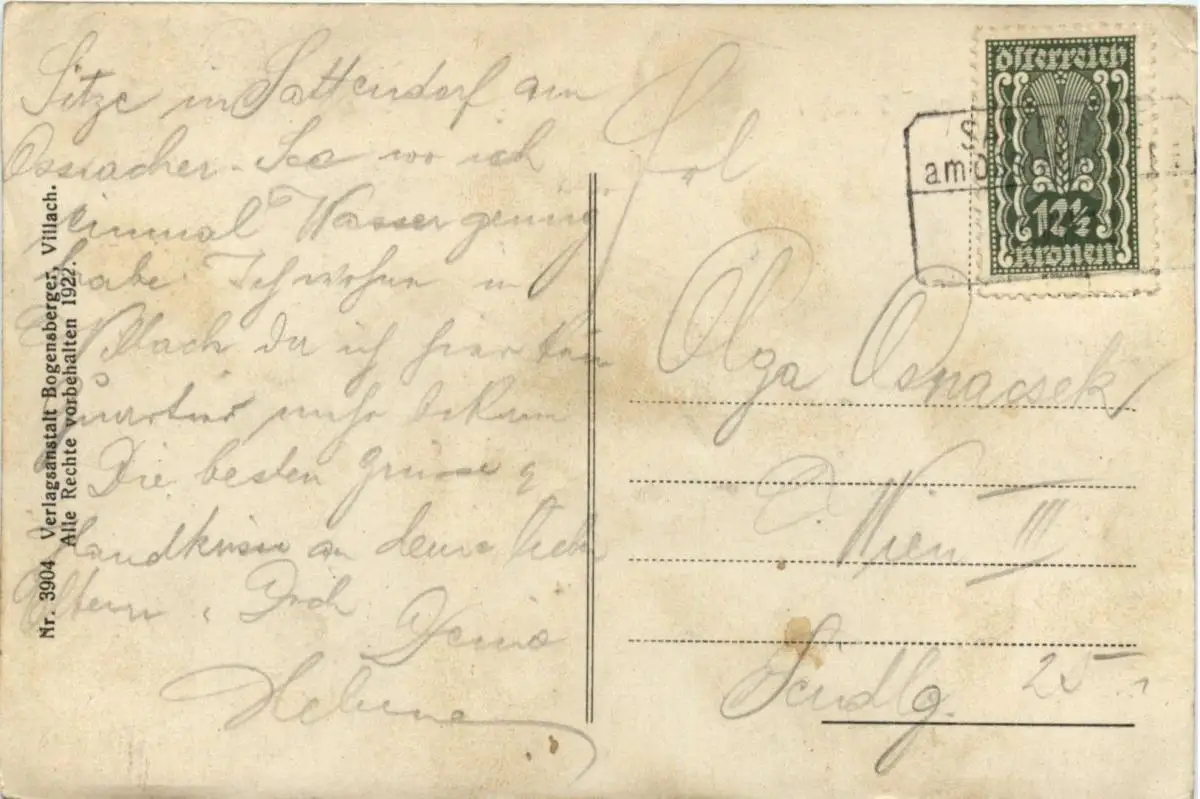 Sitze in Sattendorf am
Ossiacher-See wo ich
einmal Wasser genug
habe Ich wohne in
Villach da ich hier kein
Quartier mehr bekam
Die besten Grüsse
Handküsse an deine lieben
Eltern. Dich
Deine
Helene
Nr. 3904 Verlagsanstalt Bogensberger, Villach.
Alle Rechte vorbehalten 1922.
österreich
12½
kronen
am
Frl
Olga
Wien III
25